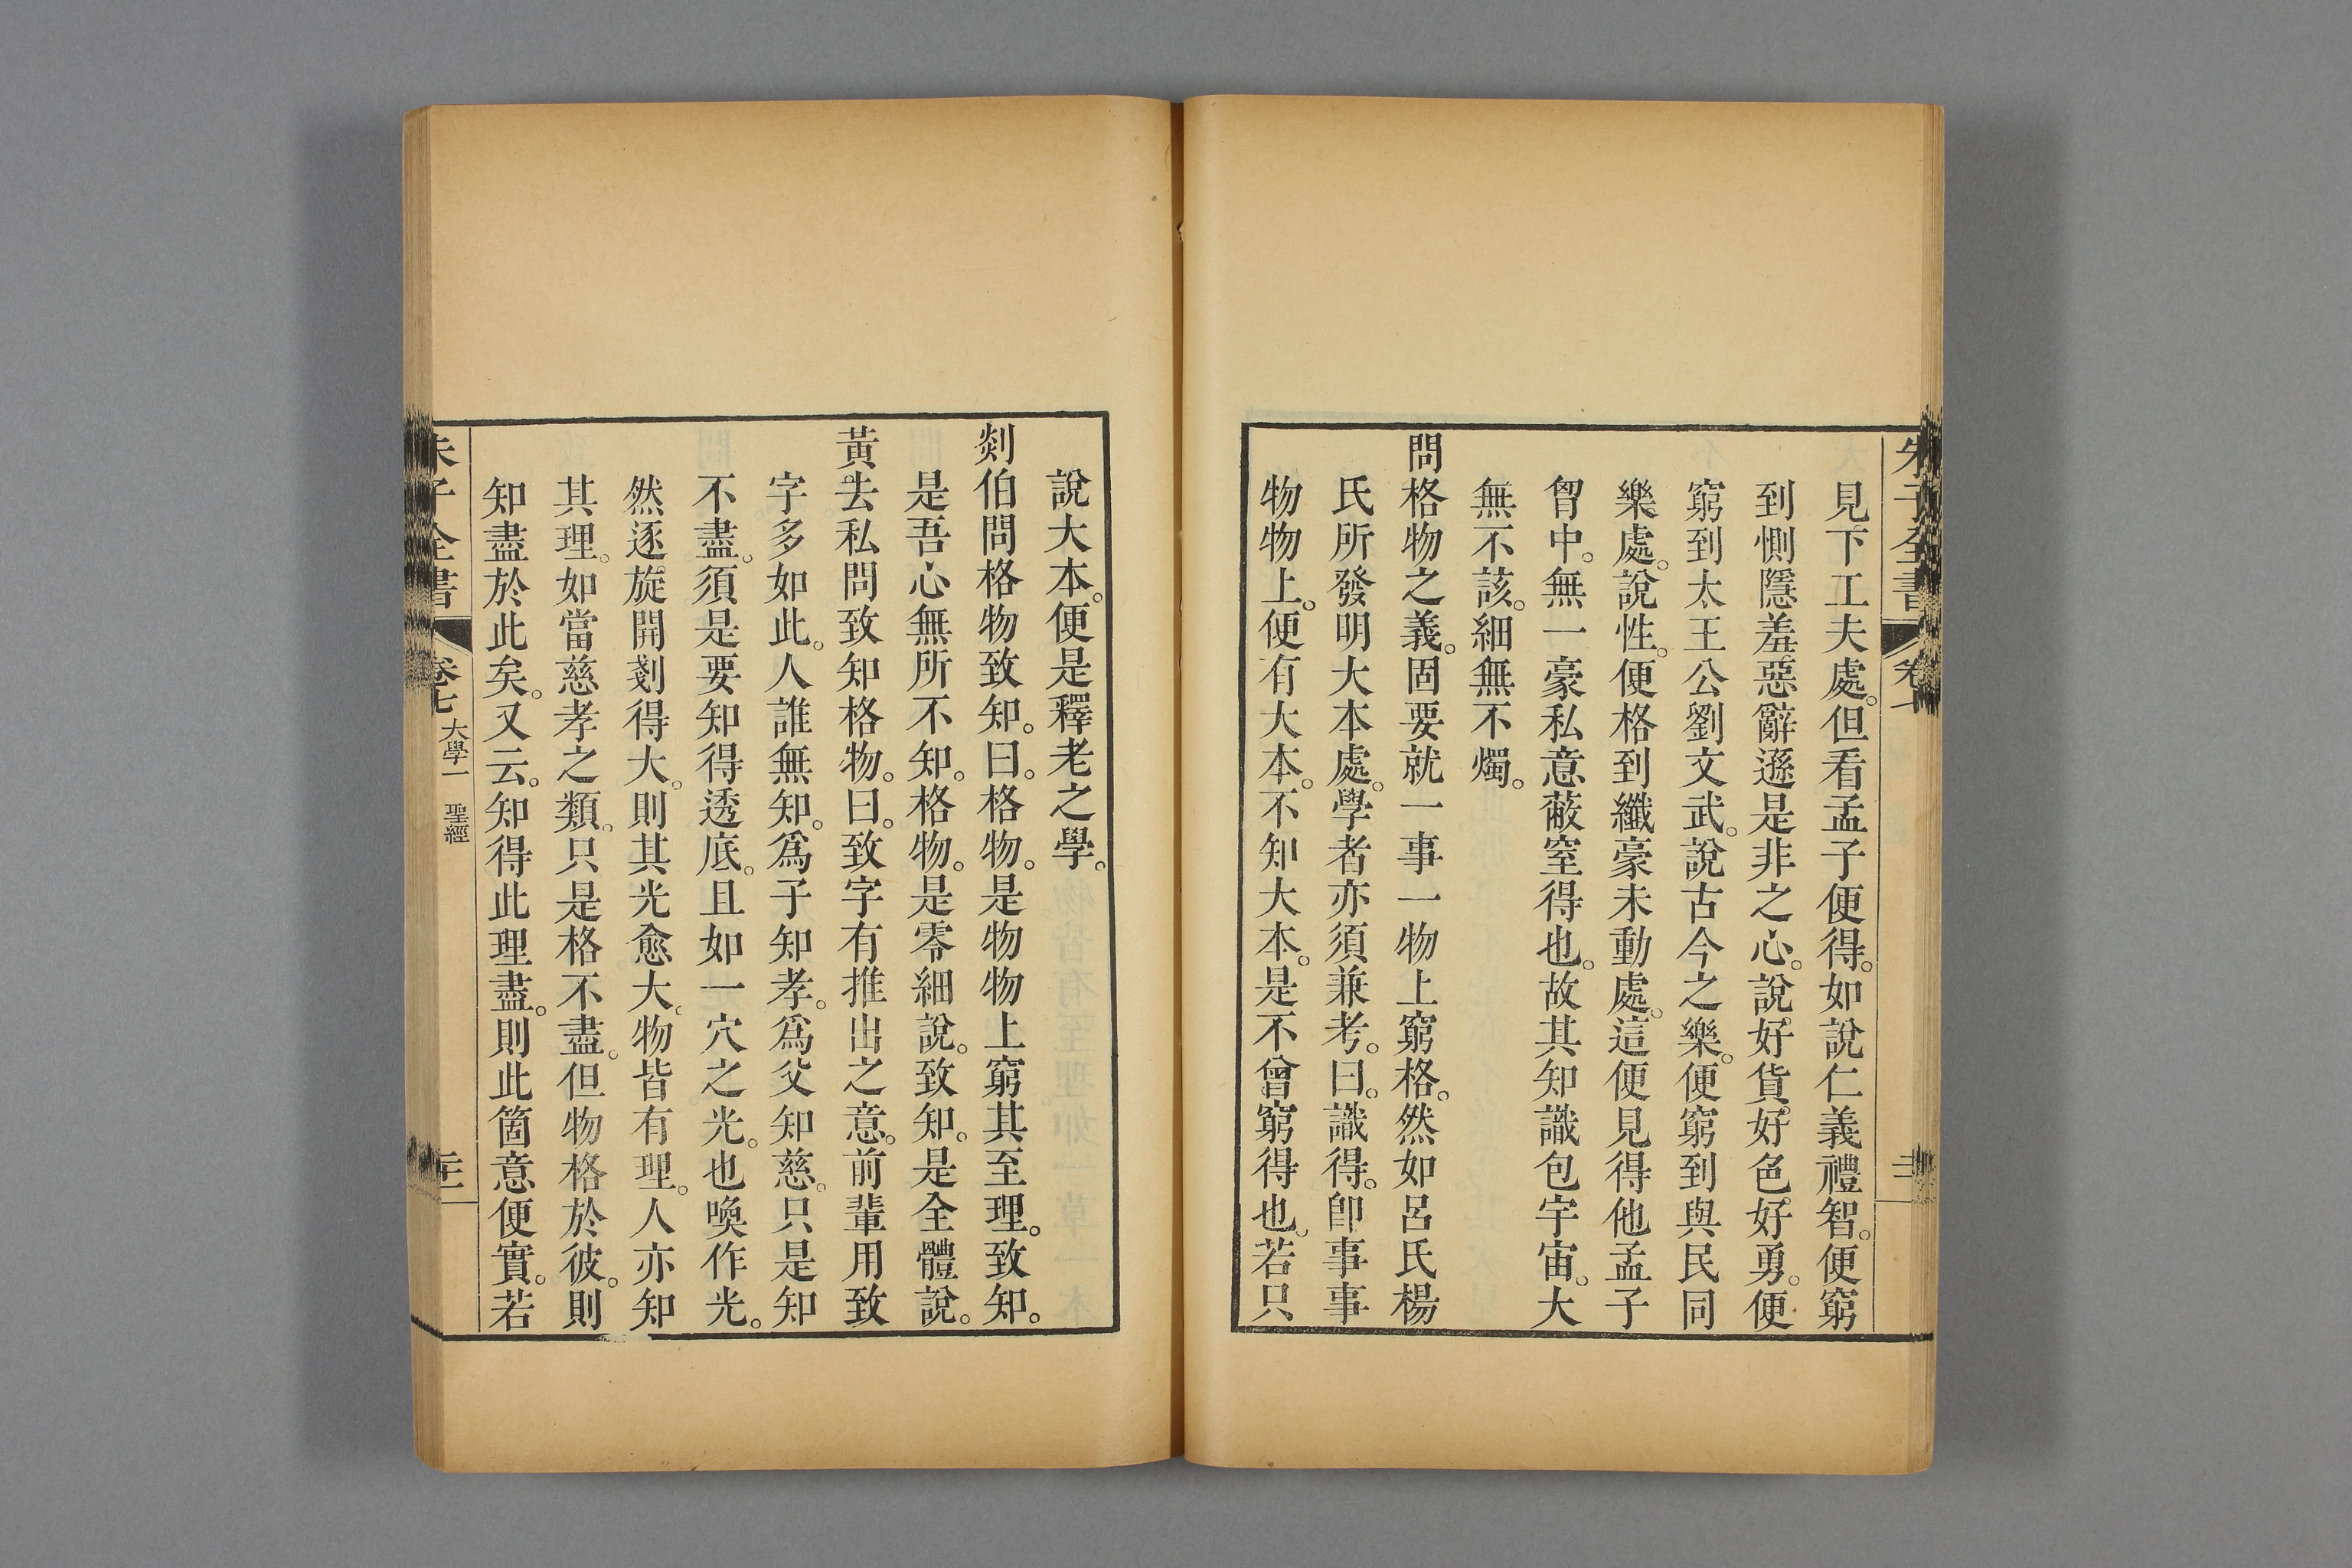 朱子全書 卷七
見下工夫處。但看孟子便得。如說仁義禮智。便窮
到惻隱羞惡辭遜是非之心。說好貨。好色。好勇。便
窮到太王公劉文武。說古今之樂。便窮到與民同
樂處。說性。便格到纖豪未動處。這便見得他孟子
胷中。無一豪私意蔽窒得也。故其知識包宇宙。大
無不該。細無不燭。
問格物之義。固要就一事一物上窮格。然如呂氏楊
氏所發明大本處。學者亦須兼考。曰。識得。卽事事
物物上。便有大本。不知大本。是不曾窮得也。若只
說大本。便是釋老之學。
剡伯問格物致知。曰。格物。是物物上窮其至理。致知。
是吾心無所不知。格物。是零細說。致知。是全體說。
黃去私問致知格物。曰。致字有推出之意。前輩用致
字多如此。人誰無知。爲子知孝。爲父知慈。只是知
不盡。須是要知得透底。且如一穴之光。也喚作光。
然逐旋開剗得大。則其光愈大。物皆有理。人亦知
其理。如當慈孝之類。只是格不盡。但物格於彼。則
知盡於此矣。又云。知得此理盡。則此箇意便實。若
朱子全書 卷七 大學一 聖經